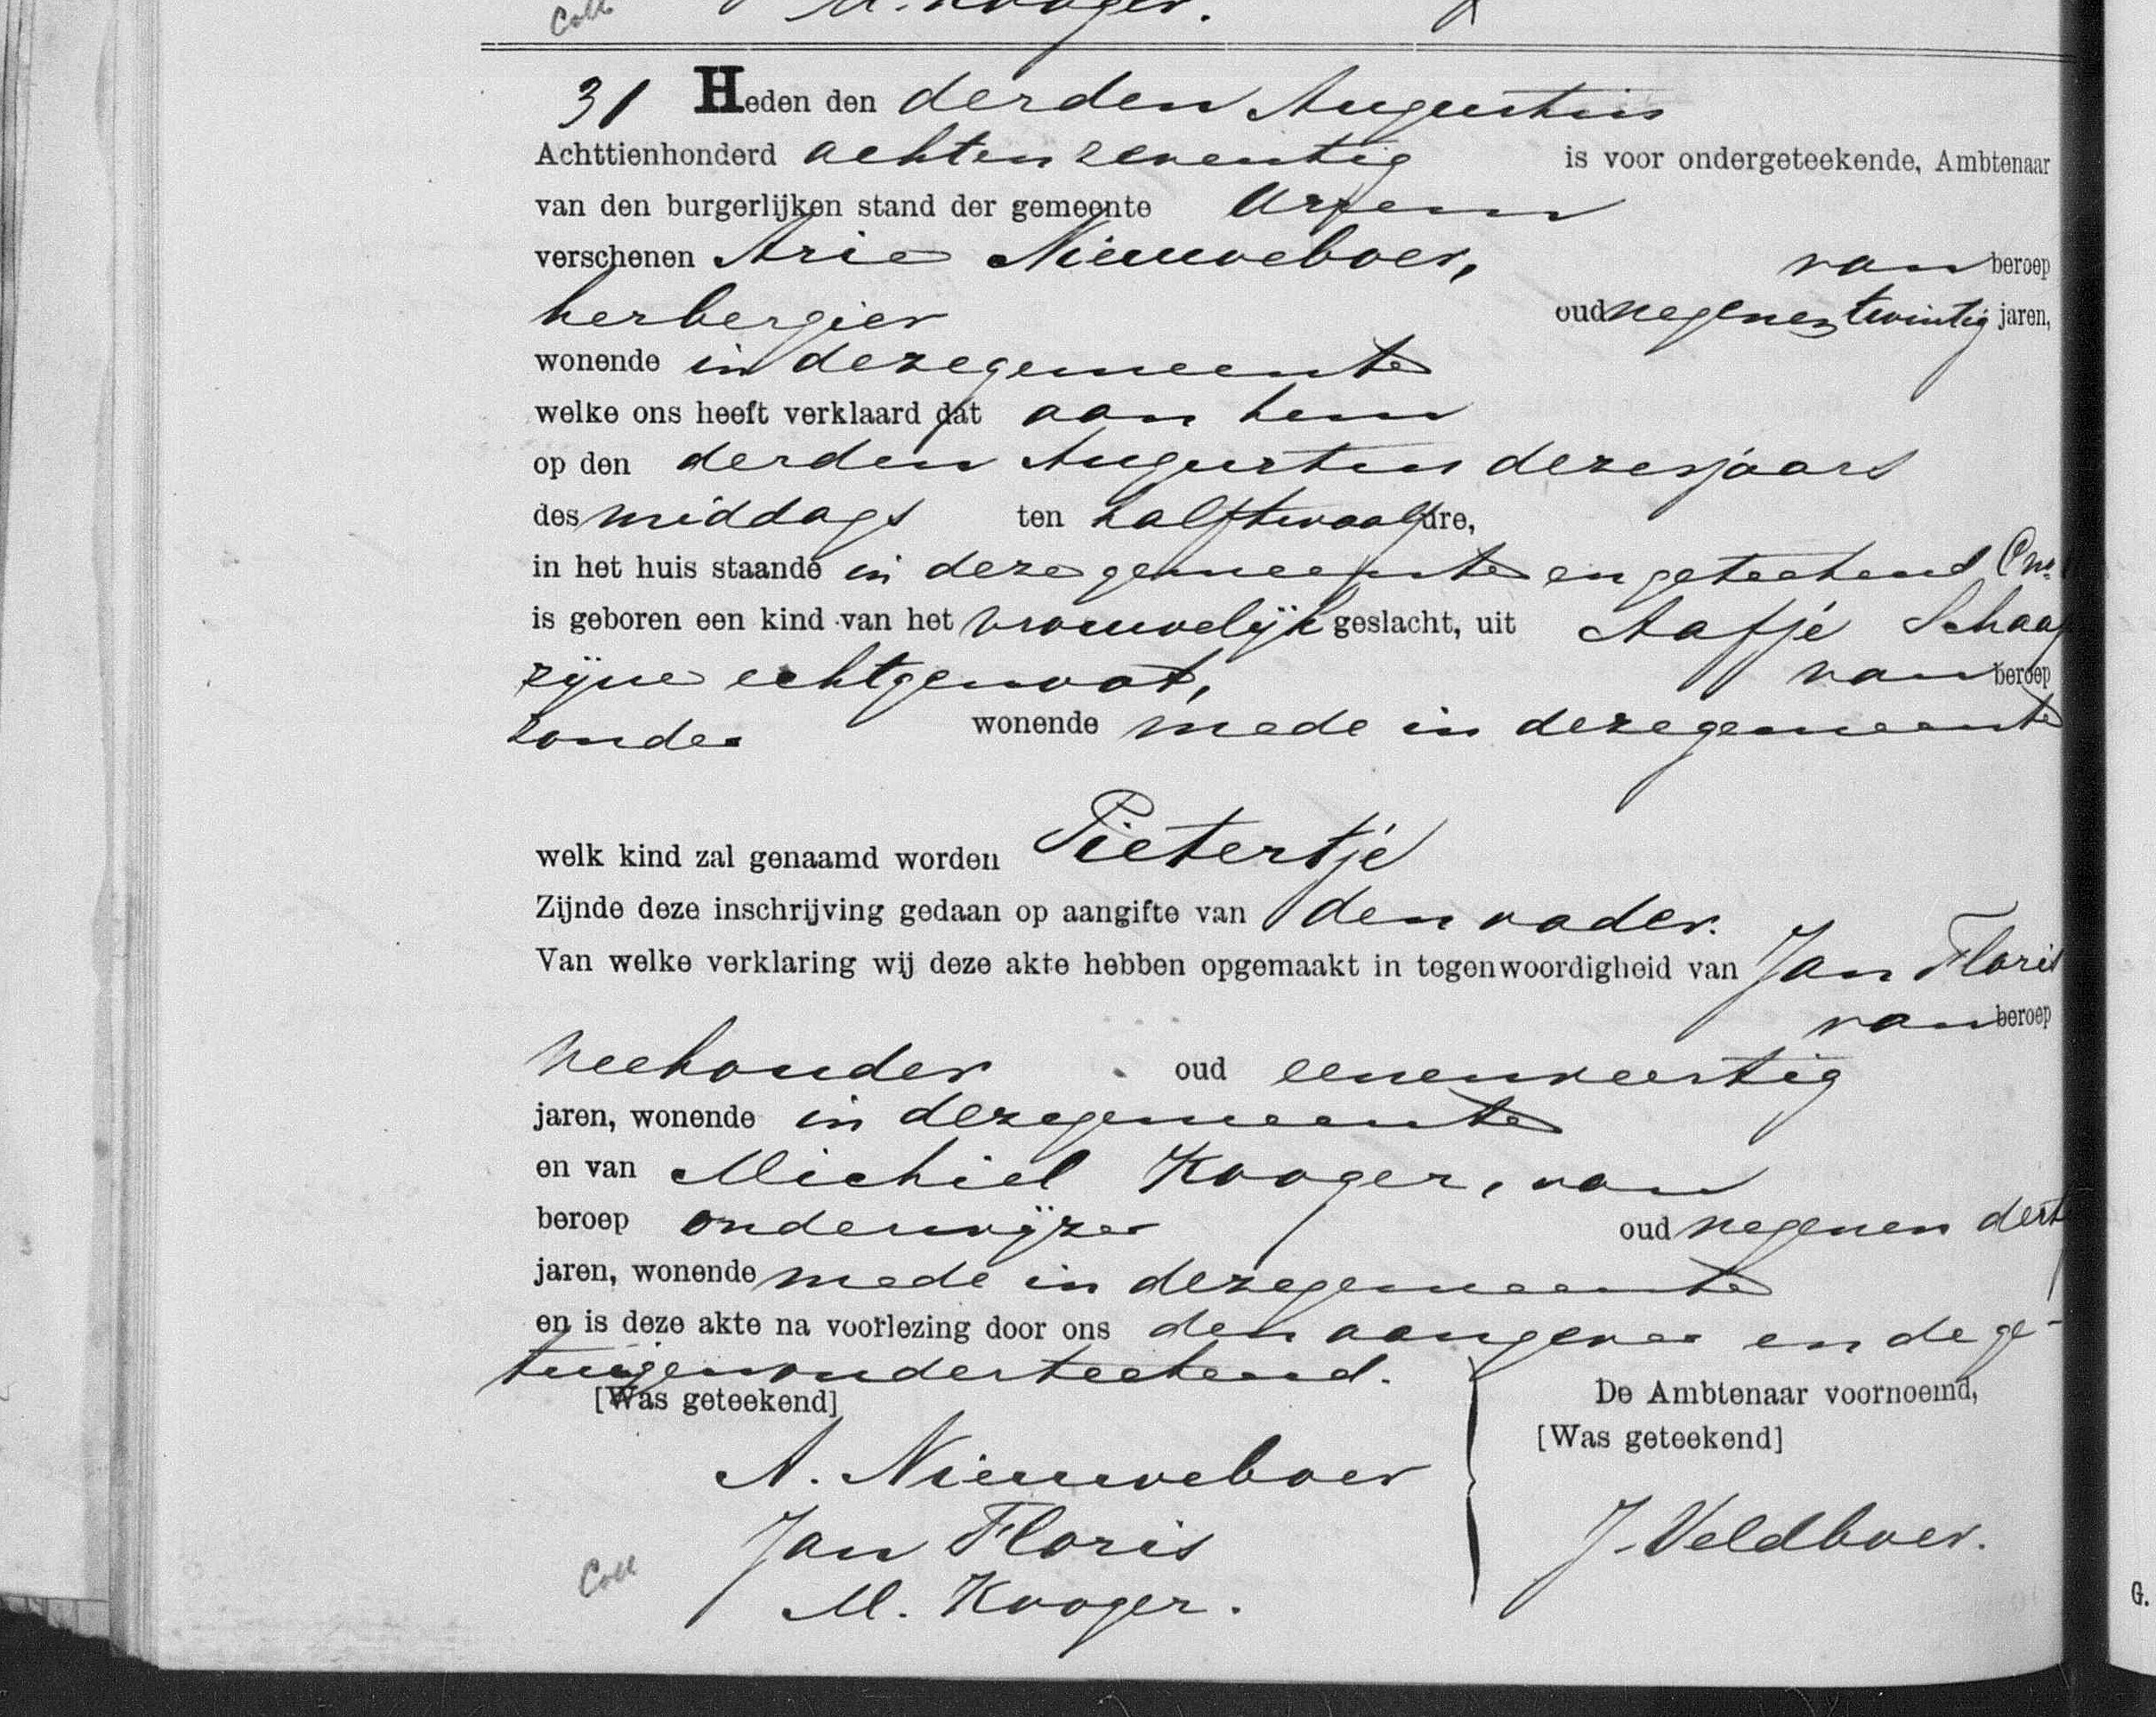 Coll M. Kooger.
31 Heden den derden Augustus
Achttienhonderd achtenzeventig is voor ondergeteekende, Ambtenaar
van den burgerlijken stand der gemeente Ursem
verschenen Arie Nieuweboer, van beroep
herbergier oud negenentwintig jaren,
wonende in dezegemeente
welke ons heeft verklaard dat aan hem
op den derden Augustus dezesjaars
des middags ten halftwaalf ure,
in het huis staande in deze gemeente en geteekend C no.
is geboren een kind van het vrouwelijk geslacht, uit Aafje Schaap
zijne echtgenoot, van beroep
zonder wonende mede in dezegemeente
welk kind zal genaamd worden Pietertje
Zijnde deze inschrijving gedaan op aangifte van den vader.
Van welke verklaring wij deze akte hebben opgemaakt in tegenwoordigheid van Jan Floris
van beroep
veehouder oud eenenveertig
jaren, wonende in dezegemeente
en van Michiel Kooger, van
beroep onderwijzer oud negenen dert
jaren, wonende mede in dezegemeente
en is deze akte na voorlezing door ons den aangever en de ge-
tuigen onderteekend.
[Was geteekend] De Ambtenaar voornoemd,
[Was geteekend]
A. Nieuweboer
Jan Floris J. Veldboer.
Coll M. Kooger.
G.